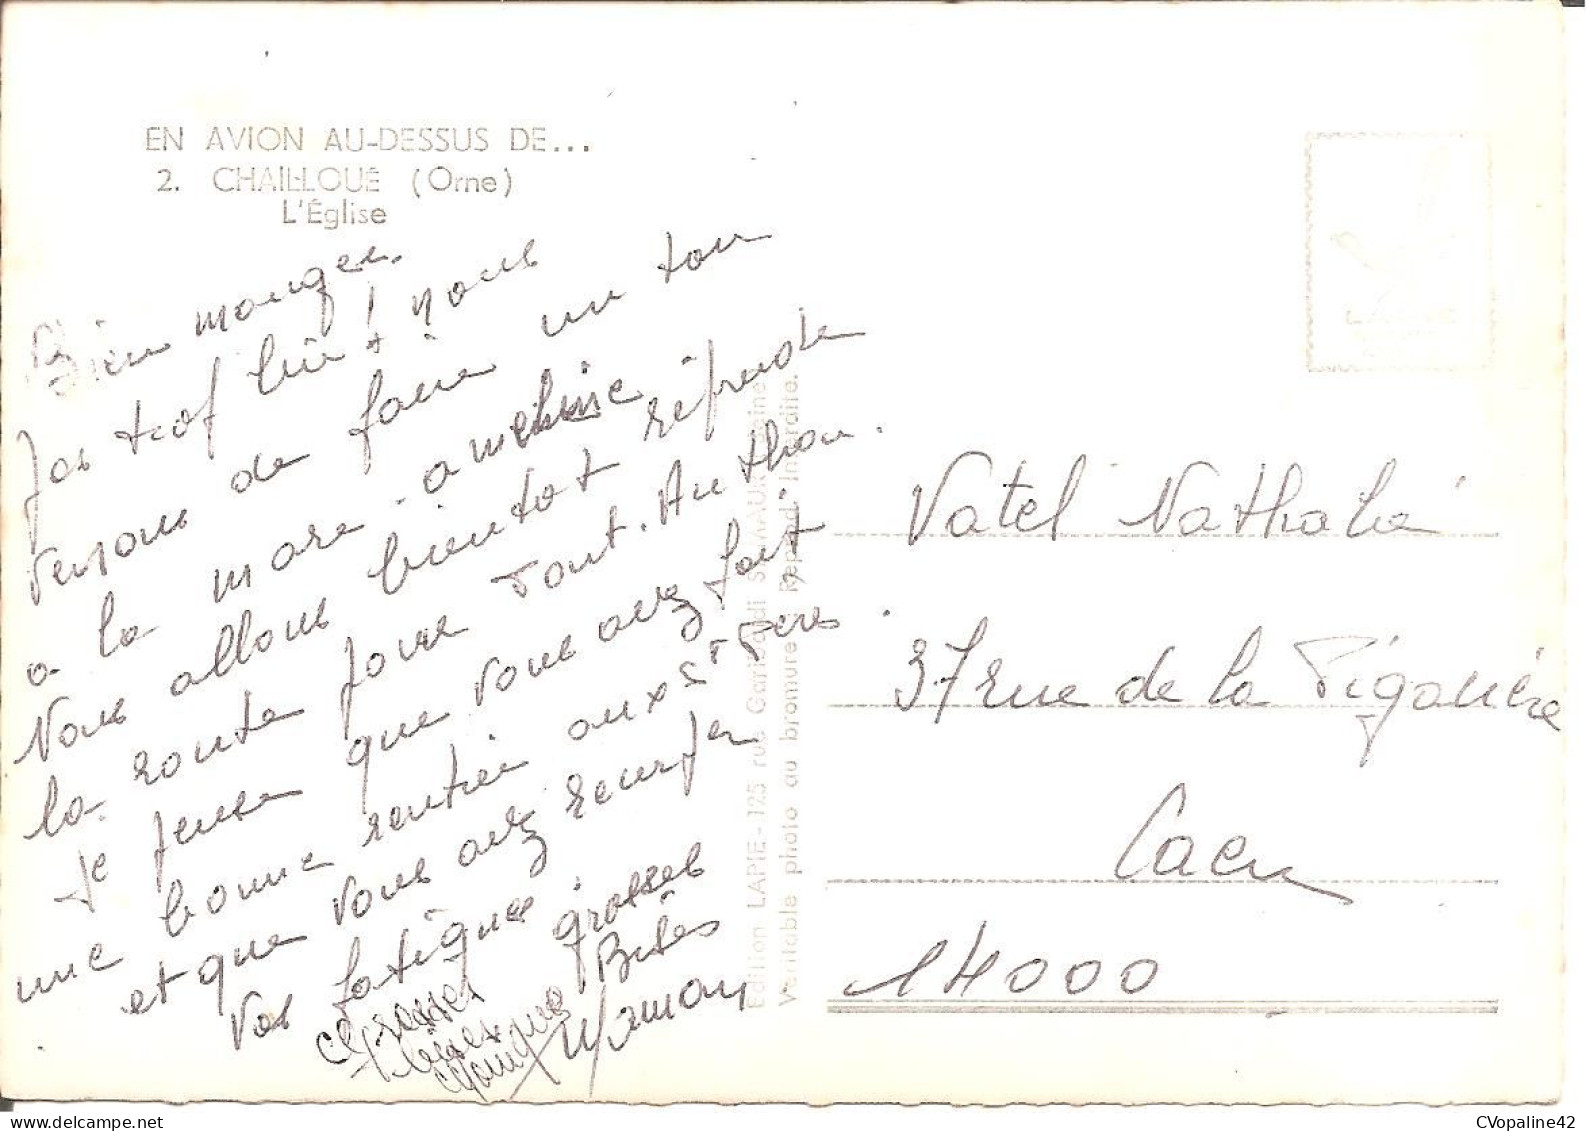 EN AVION AU-DESSUS DE...
2. CHAILLOUÉ (Orne)
L'Église
Bien manger.
Pas trop bien! nous
venons de faire un tour
a la mare. a
Nous allons bientot reprendre
la route pour Tout. An
Je pense que vous avez fait
une bonne rentrée aux
et que vous avez recuper
vos fatigues. grosses
Bises
Maman
grosses
bises
Edition LAPIE - 125 rue Garibaldi St MAUR
Véritable photo au bromure - Reprod. Interdite.
Vatel Nathalie
37 rue de la Pigacière
Caen
14000
CVopaline42